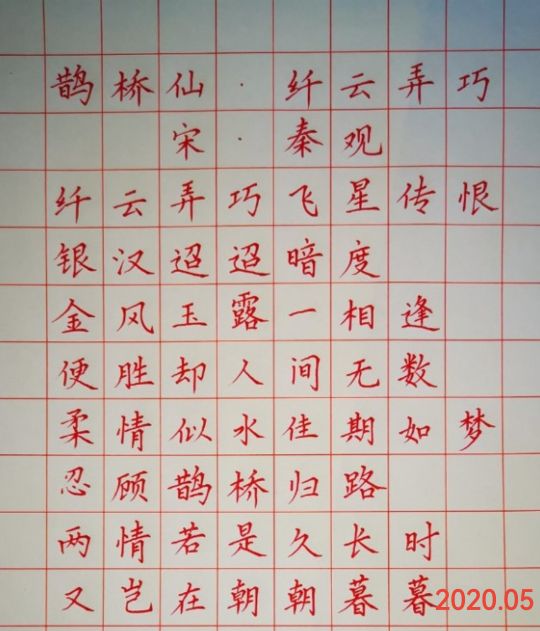 鹊桥仙·纤云弄巧
宋·秦观
纤云弄巧飞星传恨
银汉迢迢暗度
金风玉露一相逢
便胜却人间无数
柔情似水佳期如梦
忍顾鹊桥归路
两情若是久长时
又岂在朝朝暮暮
2020.05